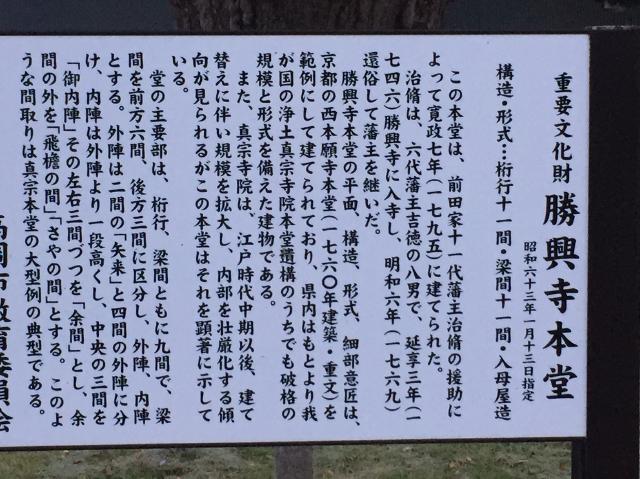 重要文化財
勝興寺本堂
昭和六十三年一月十三日指定
構造・形式…桁行十一間・梁間十一間・入母屋造
この本堂は、前田家十一代藩主治脩の援助に
よって寛政七年(一七九五)に建てられた。
治脩は、六代藩主吉徳の八男で、延享三年(一
七四六)勝興寺に入寺し、明和六年(一七六九)
還俗して藩主を継いだ。
勝興寺本堂の平面、構造、形式、細部意匠は、
京都の西本願寺本堂(一七六〇年建築・重文)を
範例にして建てられており、県内はもとより我
が国の浄土真宗寺院本堂遺構のうちでも破格の
規模と形式を備えた建物である。
また、真宗寺院は、江戸時代中期以後、建て
替えに伴い規模を拡大し、内部を壮厳化する傾
向が見られるがこの本堂はそれを顕著に示して
いる。
堂の主要部は、桁行、梁間ともに九間で、梁
間を前方六間、後方三間に区分し、外陣、内陣
とする。外陣は二間の「矢来」と四間の外陣に分
け、内陣は外陣より一段高くし、中央の三間を
「御内陣」その左右三間づつを「余間」とし、余
間の外を「飛檐の間」「さやの間」とする。このよ
うな間取りは真宗本堂の大型例の典型である。
高岡市教育委員会